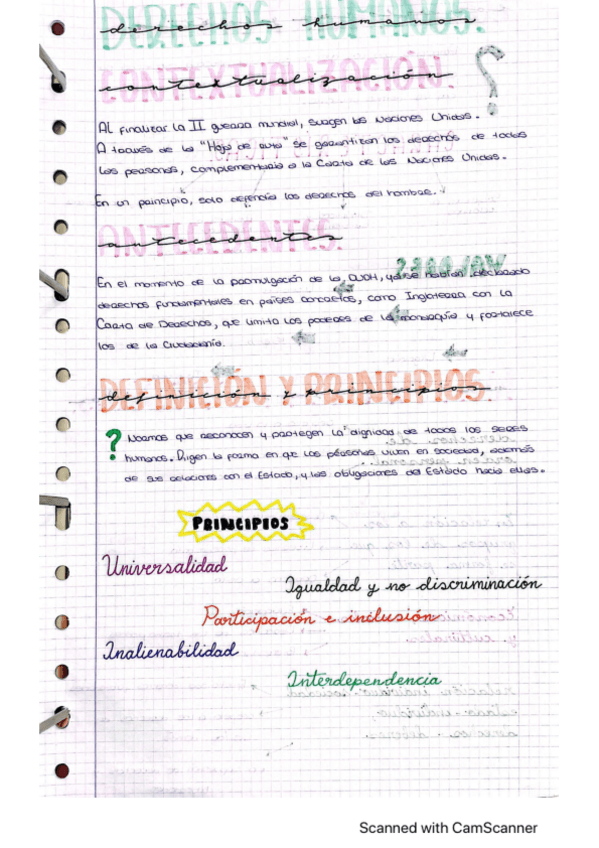 DERECHOS HUMANOS.
derechos humanos
CONTEXTUALIZACIÓN.
contextualización
Al finalizar la II guerra mundial, surgen las Naciones Unidas.
A través de la "Hoja de ruta" se garantizan los derechos de todas
las personas, complementaria a la Carta de las Naciones Unidas.
En un principio, solo defendía los derechos del hombre.
ANTECEDENTES.
antecedentes
En el momento de la promulgación de la DUDH, ya se habían declarado
derechos fundamentales en países concretos, como Inglaterra con la
Carta de Derechos, que limita los poderes de la monarquía y fortalece
los de la ciudadanía.
DEFINICIÓN Y PRINCIPIOS.
definición y principios
? Normas que reconocen y protegen la dignidad de todos los seres
humanos. Dirigen la forma en que las personas viven en sociedad, además
de sus relaciones con el Estado, y las obligaciones del Estado hacia ellas.
PRINCIPIOS
Universalidad
Igualdad y no discriminación
Participación e inclusión
Inalienabilidad
Interdependencia
Scanned with CamScanner